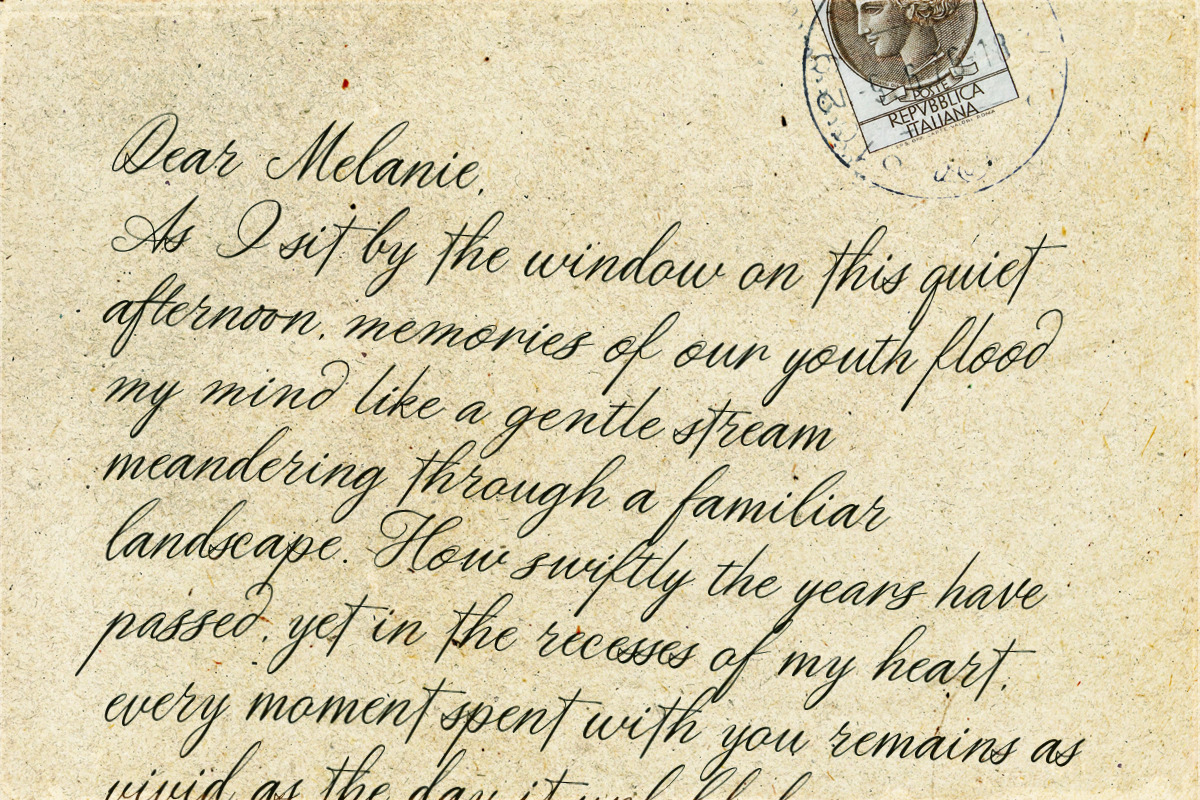 POSTE
REPVBBLICA
ITALIANA
Dear Melanie,
As I sit by the window on this quiet
afternoon, memories of our youth flood
my mind like a gentle stream
meandering through a familiar
landscape. How swiftly the years have
passed, yet in the recesses of my heart,
every moment spent with you remains as
vivid as the day it